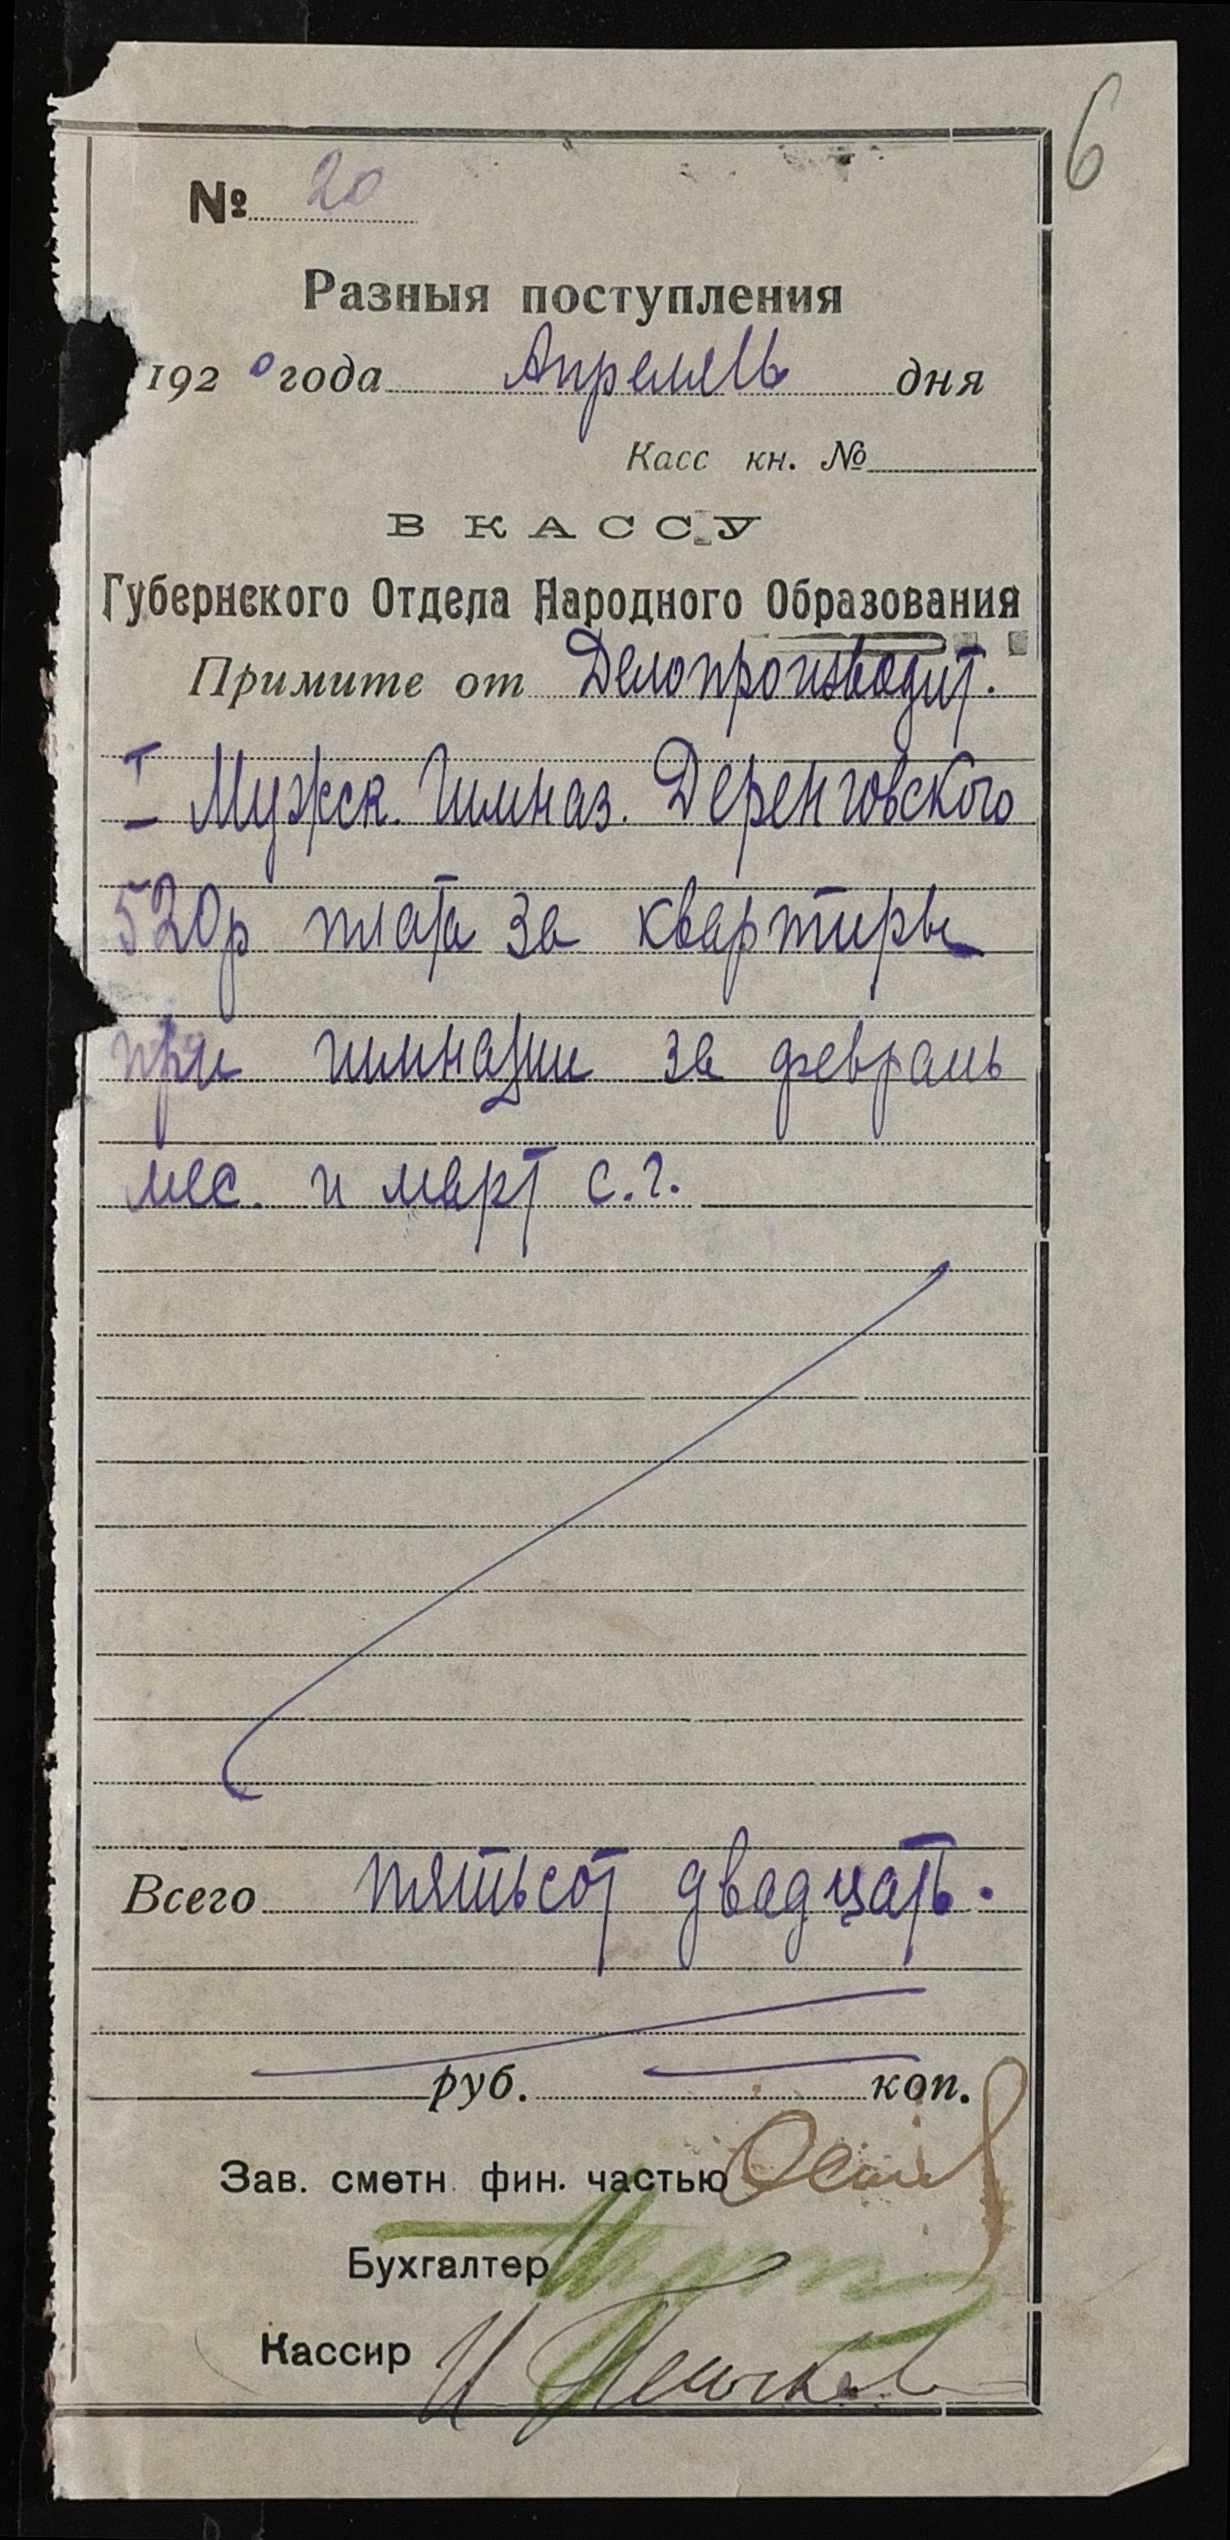 6
№ 20
Разныя поступления
1920 года Апреля 16 дня
Касс кн. №
В КАССУ
Губернского Отдела Народного Образования
Примите от Делопроизводит.
I Мужск. Гимназ. Деренговского
520р плата за квартиры
при гимназии за февраль
мес. и март с.г.
Всего пятьсот двадцать.
руб. коп.
Зав. сметн. фин. частью
Бухгалтер
Кассир